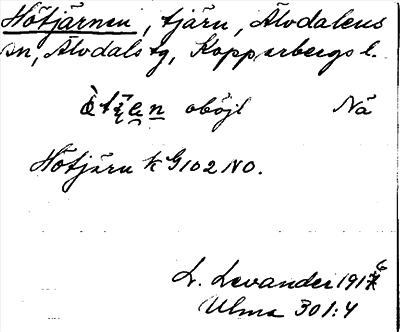 Hötjärnen, tjärn, Älvdalens
sn, Älvdals tg, Kopparbergs l.
oböjl Nä
Hötjärn k G102 NO.
L. Levander 1916
Ulma 301:4